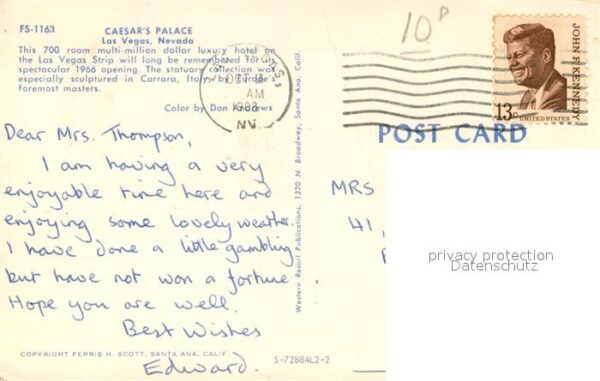 FS-1163
CAESAR'S PALACE
Las Vegas, Nevada
This 700 room multi-million dollar luxury hotel on
the Las Vegas Strip will long be remembered for its
spectacular 1966 opening. The statuary collection was
especially sculptured in Carrara, Italy by Europe's
foremost masters.
Color by Don Andrews
10P
OCT
AM
NV.
JOHN F. KENNEDY
13c
UNITED STATES
POST CARD
Dear Mrs. Thompson,
I am having a very
enjoyable time here and
enjoying some lovely weather.
I have done a little gambling
but have not won a fortune
Hope you are well.
Best Wishes
Edward.
Western Resort Publications, 1320 N. Broadway, Santa Ana, Calif.
MRS
41,
privacy protection
Datenschutz
COPYRIGHT FERRIS H. SCOTT, SANTA ANA, CALIF.
S-72884L2-2